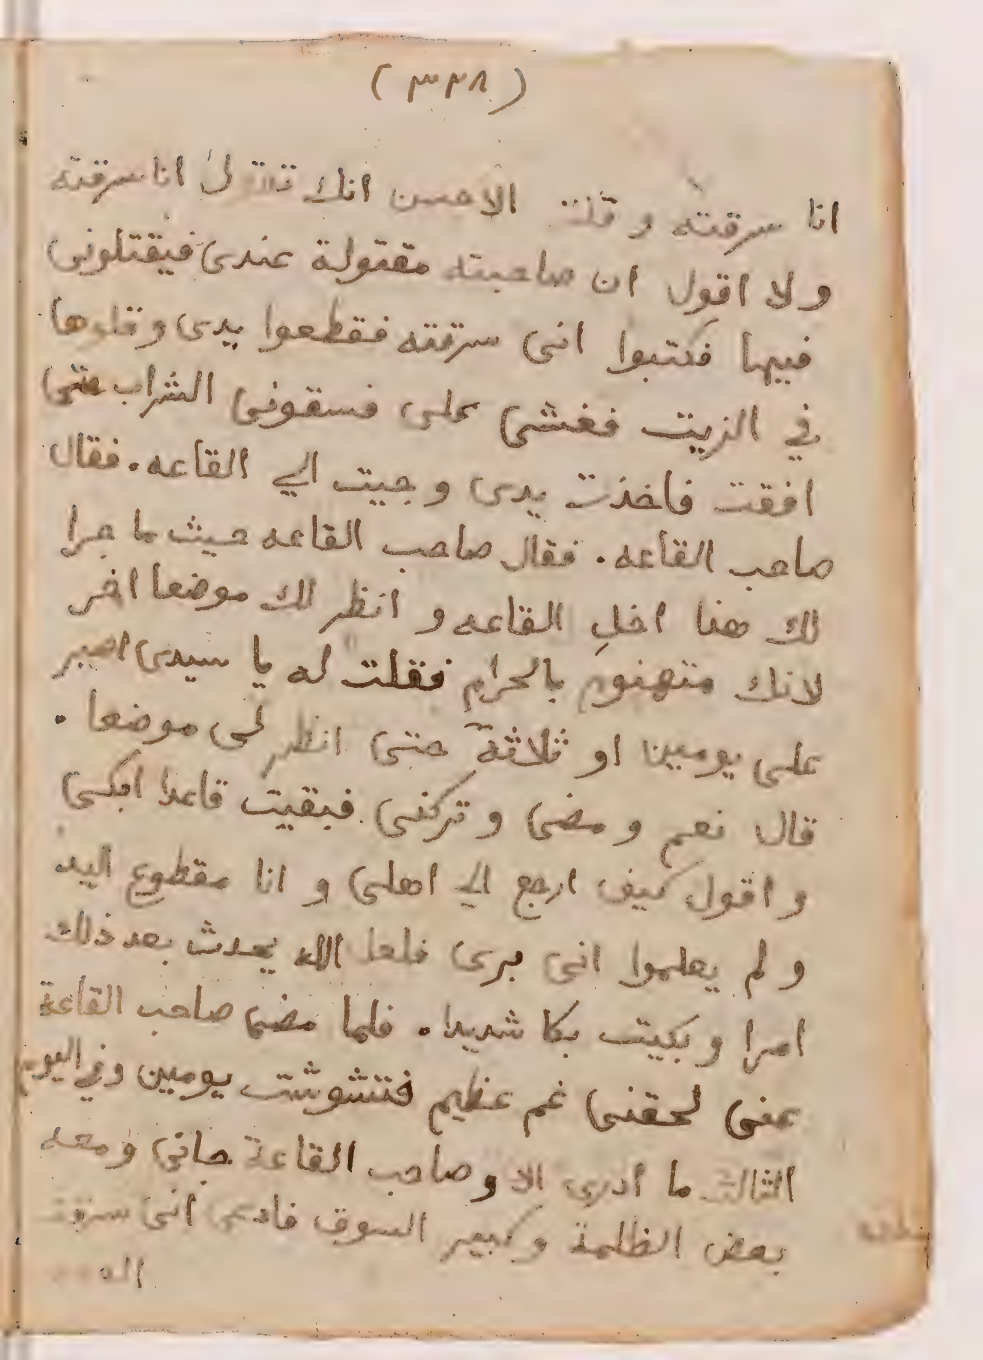 (٣٣٨)
انا سرقته و قلت الاحسن انك تقول انا سرقته
ولا اقول ان صاحبته مقتولة عندى فيقتلونى
فيها فكتبوا انى سرقته فقطعوا يدى وقلوها
في الزيت فغشى على فسقونى الشراب حتى
افقت فاخذت يدى وجيت الي القاعه . فقال
صاحب القاعه . فقال صاحب القاعه حيث ما جرا
لك هذا اخلِ القاعه و انظر لك موضعا اخر
لانك متهنوم بالحرام فقلت له يا سيدى اصبر
على يومين او ثلاثة حتى انظر لى موضعا .
قال نعم و مضى و تركنى فبقيت قاعدا ابكى
و اقول كيف ارجع الي اهلى و انا مقطوع اليد
و لم يعلموا انى برى فلعل الله يحدث بعد ذلك
امرا و بكيت بكا شديدا . فلما مضى صاحب القاعة
عنى لحقنى غم عظيم فتشوشت يومين وفي اليوم
الثالث ما ادرى الا وصاحب القاعة جانى ومعه
بعض الظلمة وكبير السوق فادعى انى سرقت